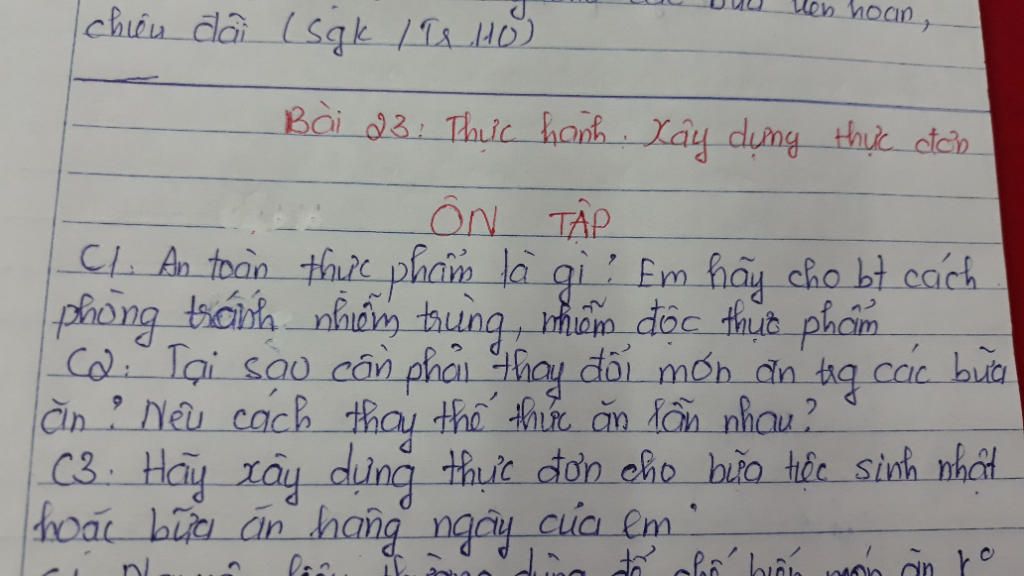 các bữa liên hoan,
chiêu đãi (Sgk / Tr 110)
Bài 23: Thực hành. Xây dựng thực đơn
ÔN TẬP
C1. An toàn thực phẩm là gì? Em hãy cho bt cách
phòng tránh nhiễm trùng, nhiễm độc thực phẩm
C2: Tại sao cần phải thay đổi món ăn trg các bữa
ăn? Nêu cách thay thế thức ăn lẫn nhau?
C3. Hãy xây dựng thực đơn cho bữa tiệc sinh nhật
hoặc bữa ăn hàng ngày của em.
dùng để chế biến món ăn